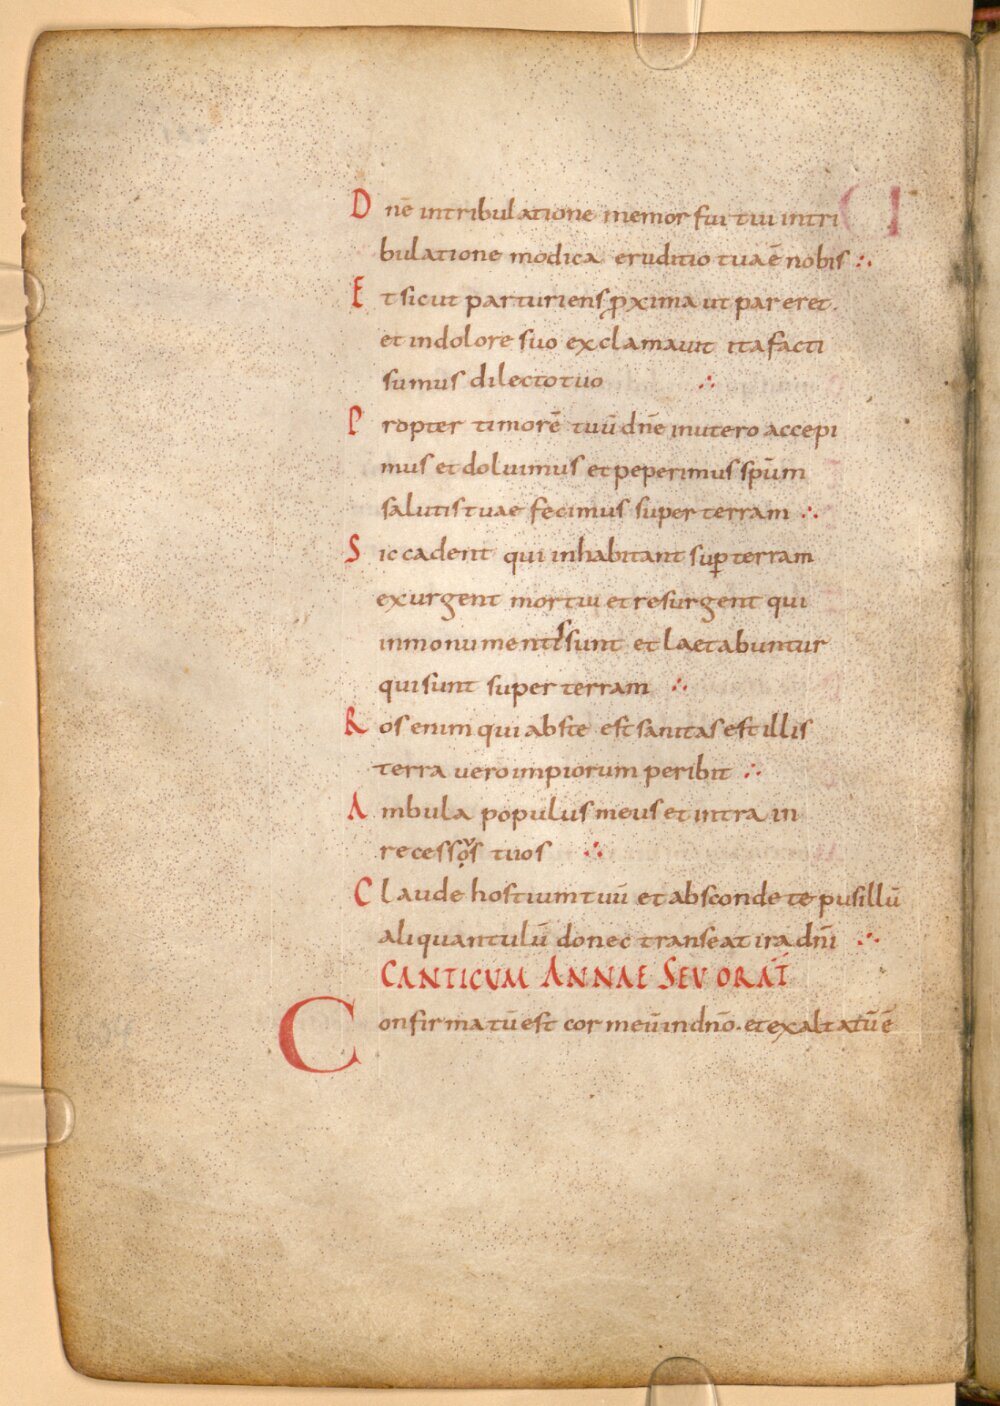 Dnē intribulatione memor fui tui intri
bulatione modica eruditio tua ē nobis ∴
Et sicut parturiens ꝓxima ut pareret.
et indolore suo exclamauit ita facti
sumus dilecto tuo ∴
Propter timorē tuū dn̄e inutero accepi
mus et doluimus et peperimus sp̄um
salutis tuae fecimus super terram ∴
Sic cadent qui inhabitant suꝑ terram
exurgent mortui et resurgent qui
inmonumentis sunt et laetabuntur
qui sunt super terram ∴
Ros enim qui abste est sanitas est illis
terra uero impiorum peribit ∴
Ambula populus meus et intra in
recessos tuos ∴
Claude hostium tuū et absconde te pusillū
aliquantulū donec transeat ira dn̄i ∴
CANTICUM ANNAE SEU ORAT̄
Confirmatū est cor meū indn̄o. et exaltatū ē